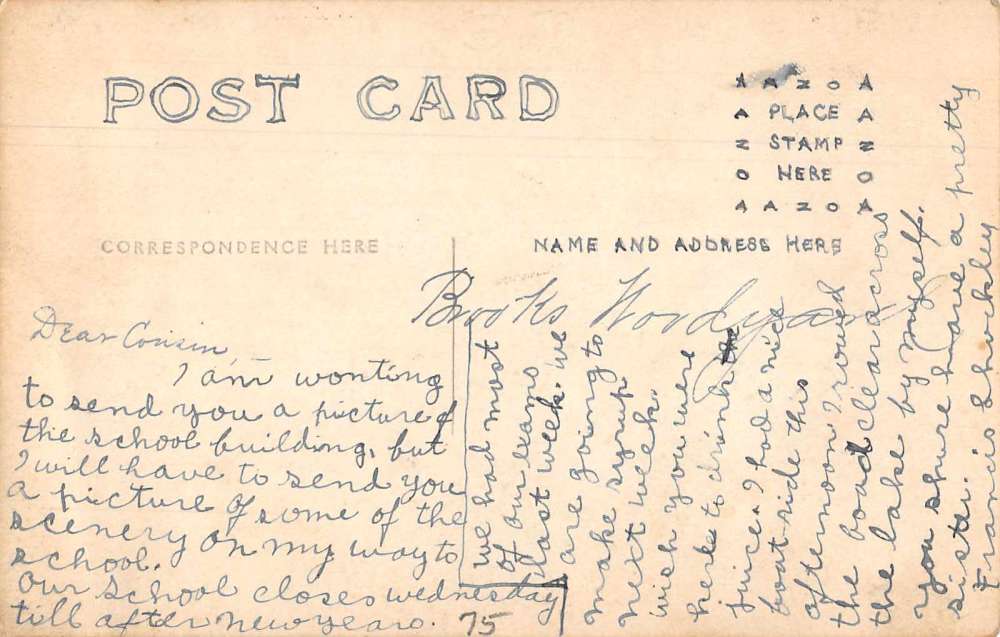 POST CARD
A A Z O A
A PLACE A
Z STAMP Z
O HERE O
A A Z O A
CORRESPONDENCE HERE
NAME AND ADDRESS HERE
Brooks Woodyard
Dear Cousin,
I am wonting
to send you a picture of
the school building, but
I will have to send you
a picture of some of the
scenery on my way to
school.
Our school closes wednesday
till after new years.
75
we had most
of our exams
last week. we
are going to
make syrup
next week.
wich you were
here to drink the
juice. I had a nice
boat ride this
afternoon I rowed
the boat clear across
the lake by myself.
you shure have a pretty
sister. Francis Shockley